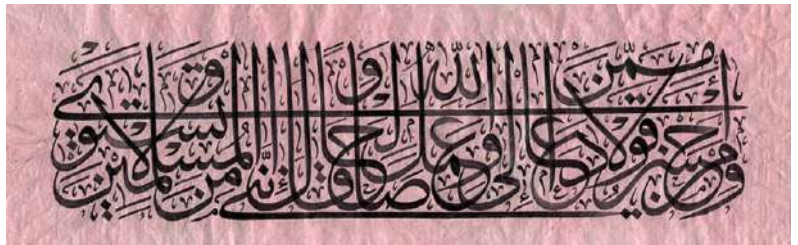 وَمَنْ أَحْسَنُ قَوْلًا مِمَّنْ دَعَا إِلَى اللّٰهِ وَعَمِلَ صَالِحًا وَقَالَ إِنَّنِى مِنَ الْمُسْلِمِينَ وَلَا تَسْتَوِى